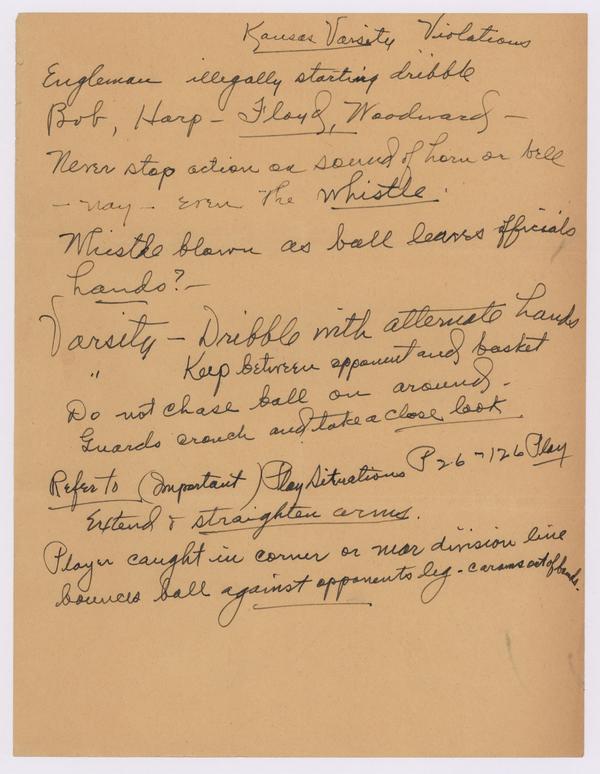 Kansas Varsity Violations
Engleman illegally starting dribble
Bob, Harp - Floyd, Woodward -
Never stop action on sound of horn or bell
- nay - even the whistle.
Whistle blown as ball leaves officials
hands? -
Varsity - Dribble with alternate hands
" Keep between opponent and basket
Do not chase ball on around.
Guards crouch and take a close look
Refer to (Important) Play Situations P 26 - 126 Play
Extend & straighten arms.
Player caught in corner or near division line
bounces ball against opponents leg - caroms out of bounds.